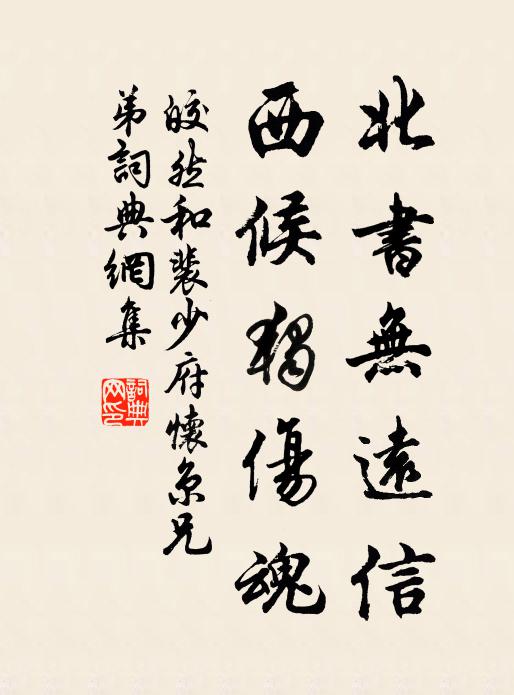 北書無遠信
西候獨傷魂
皎然和裴少府懷京兄
弟詞典網集
詞典
网印